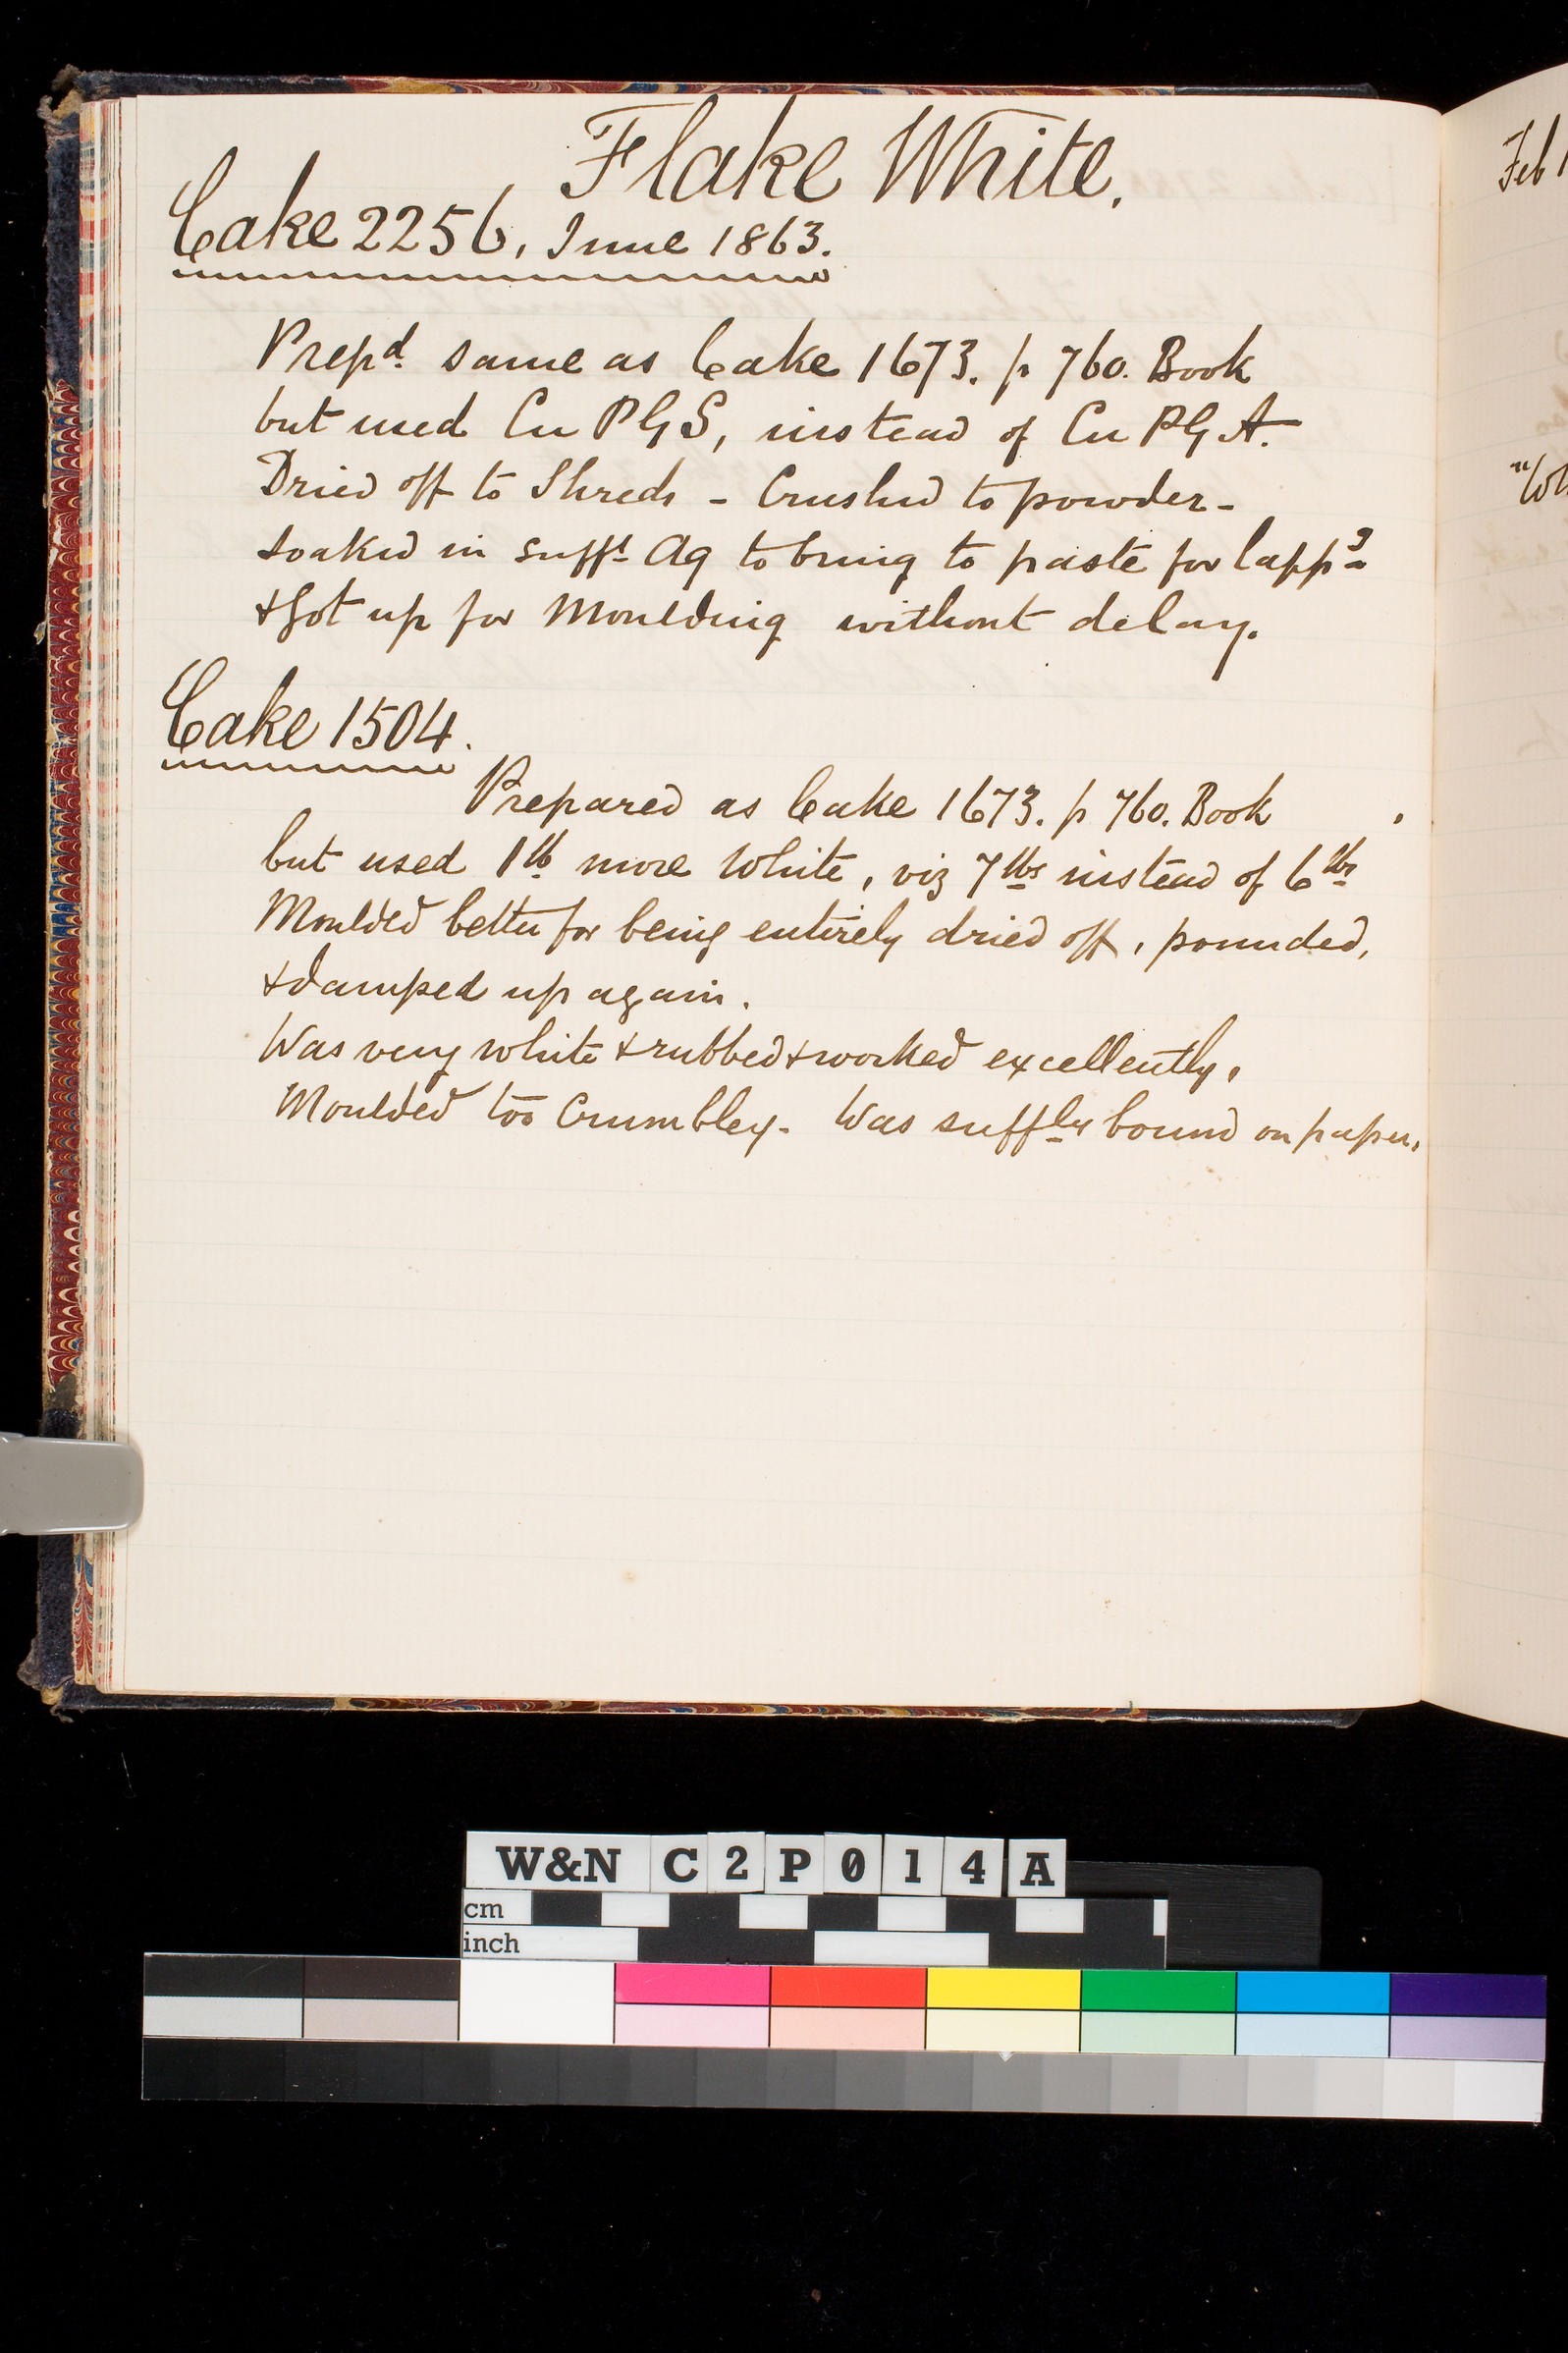 Flake White.
Cake 2256, June 1863.
Prepd. same as Cake 1673. p 760. Book
but used Cu P G S, instead of Cu P G A.
Dried off to Shreds - Crushed to powder -
soaked in sufft. Aq to bring to paste for lappg
& Got up for Moulding without delay.
Cake 1504.
Prepared as Cake 1673. p 760. Book
but used 1lb more White, viz 7lbs instead of 6lbs
Moulded better for being entirely dried off, pounded,
& damped up again.
Was very white & rubbed & worked excellently,
Moulded too Crumbley. Was suffly bound on paper.
Feb 1
W&N C2P014A
cm
inch